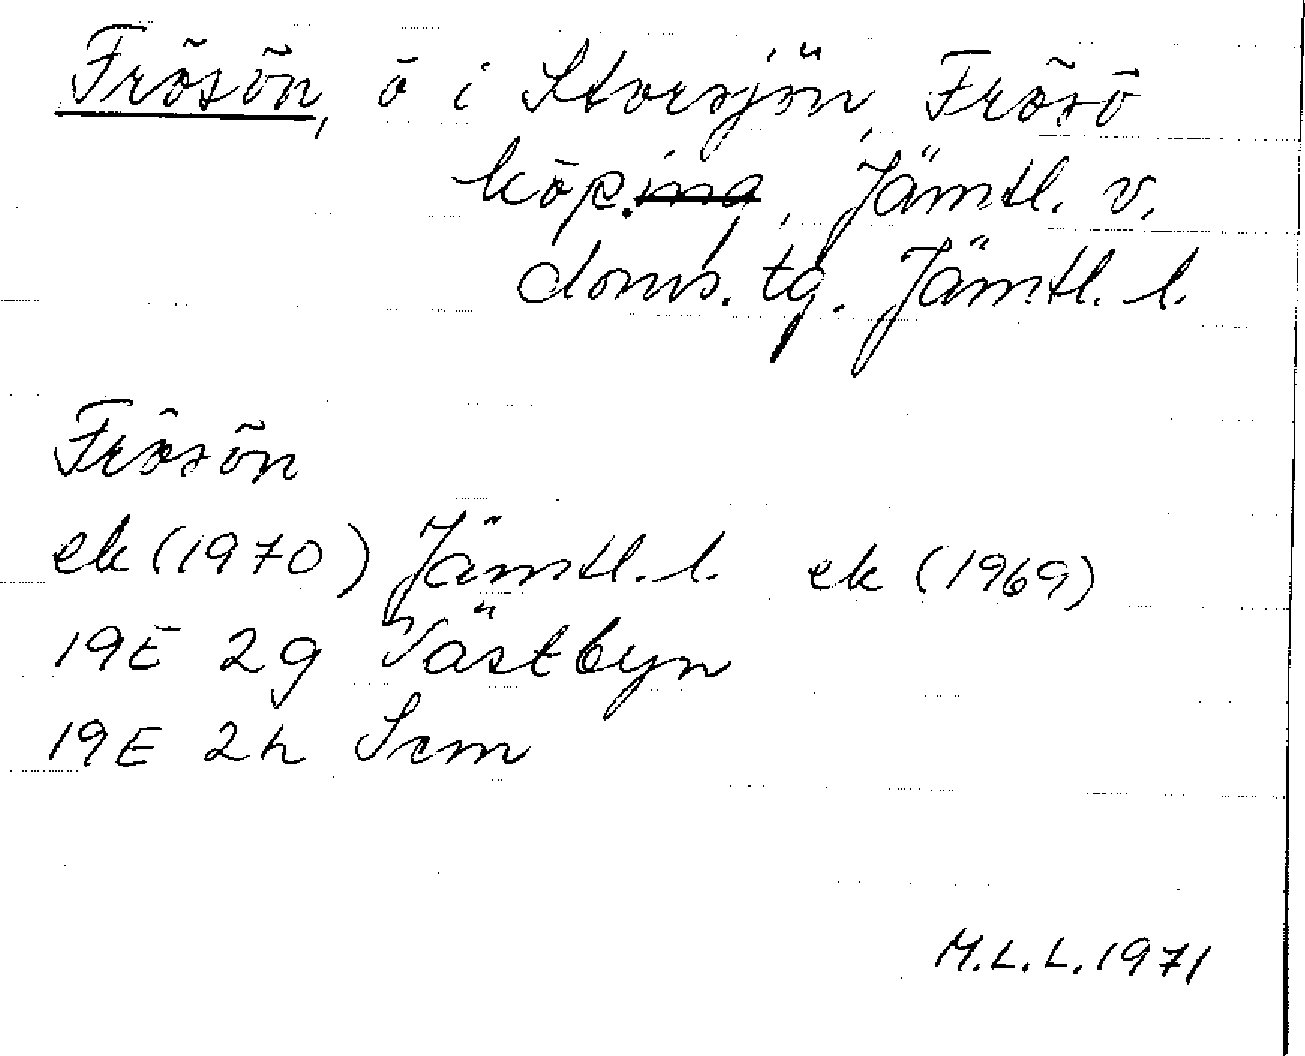 Frösön, ö i Storsjön, Frösö
köp.ing, Jämtl. v.
doms. tg. Jämtl. l.
Frösön
ek (1970) Jämtl. l. ek (1969)
19E 2g Västbyn
19E 2h Scm
M.L.L. 1971